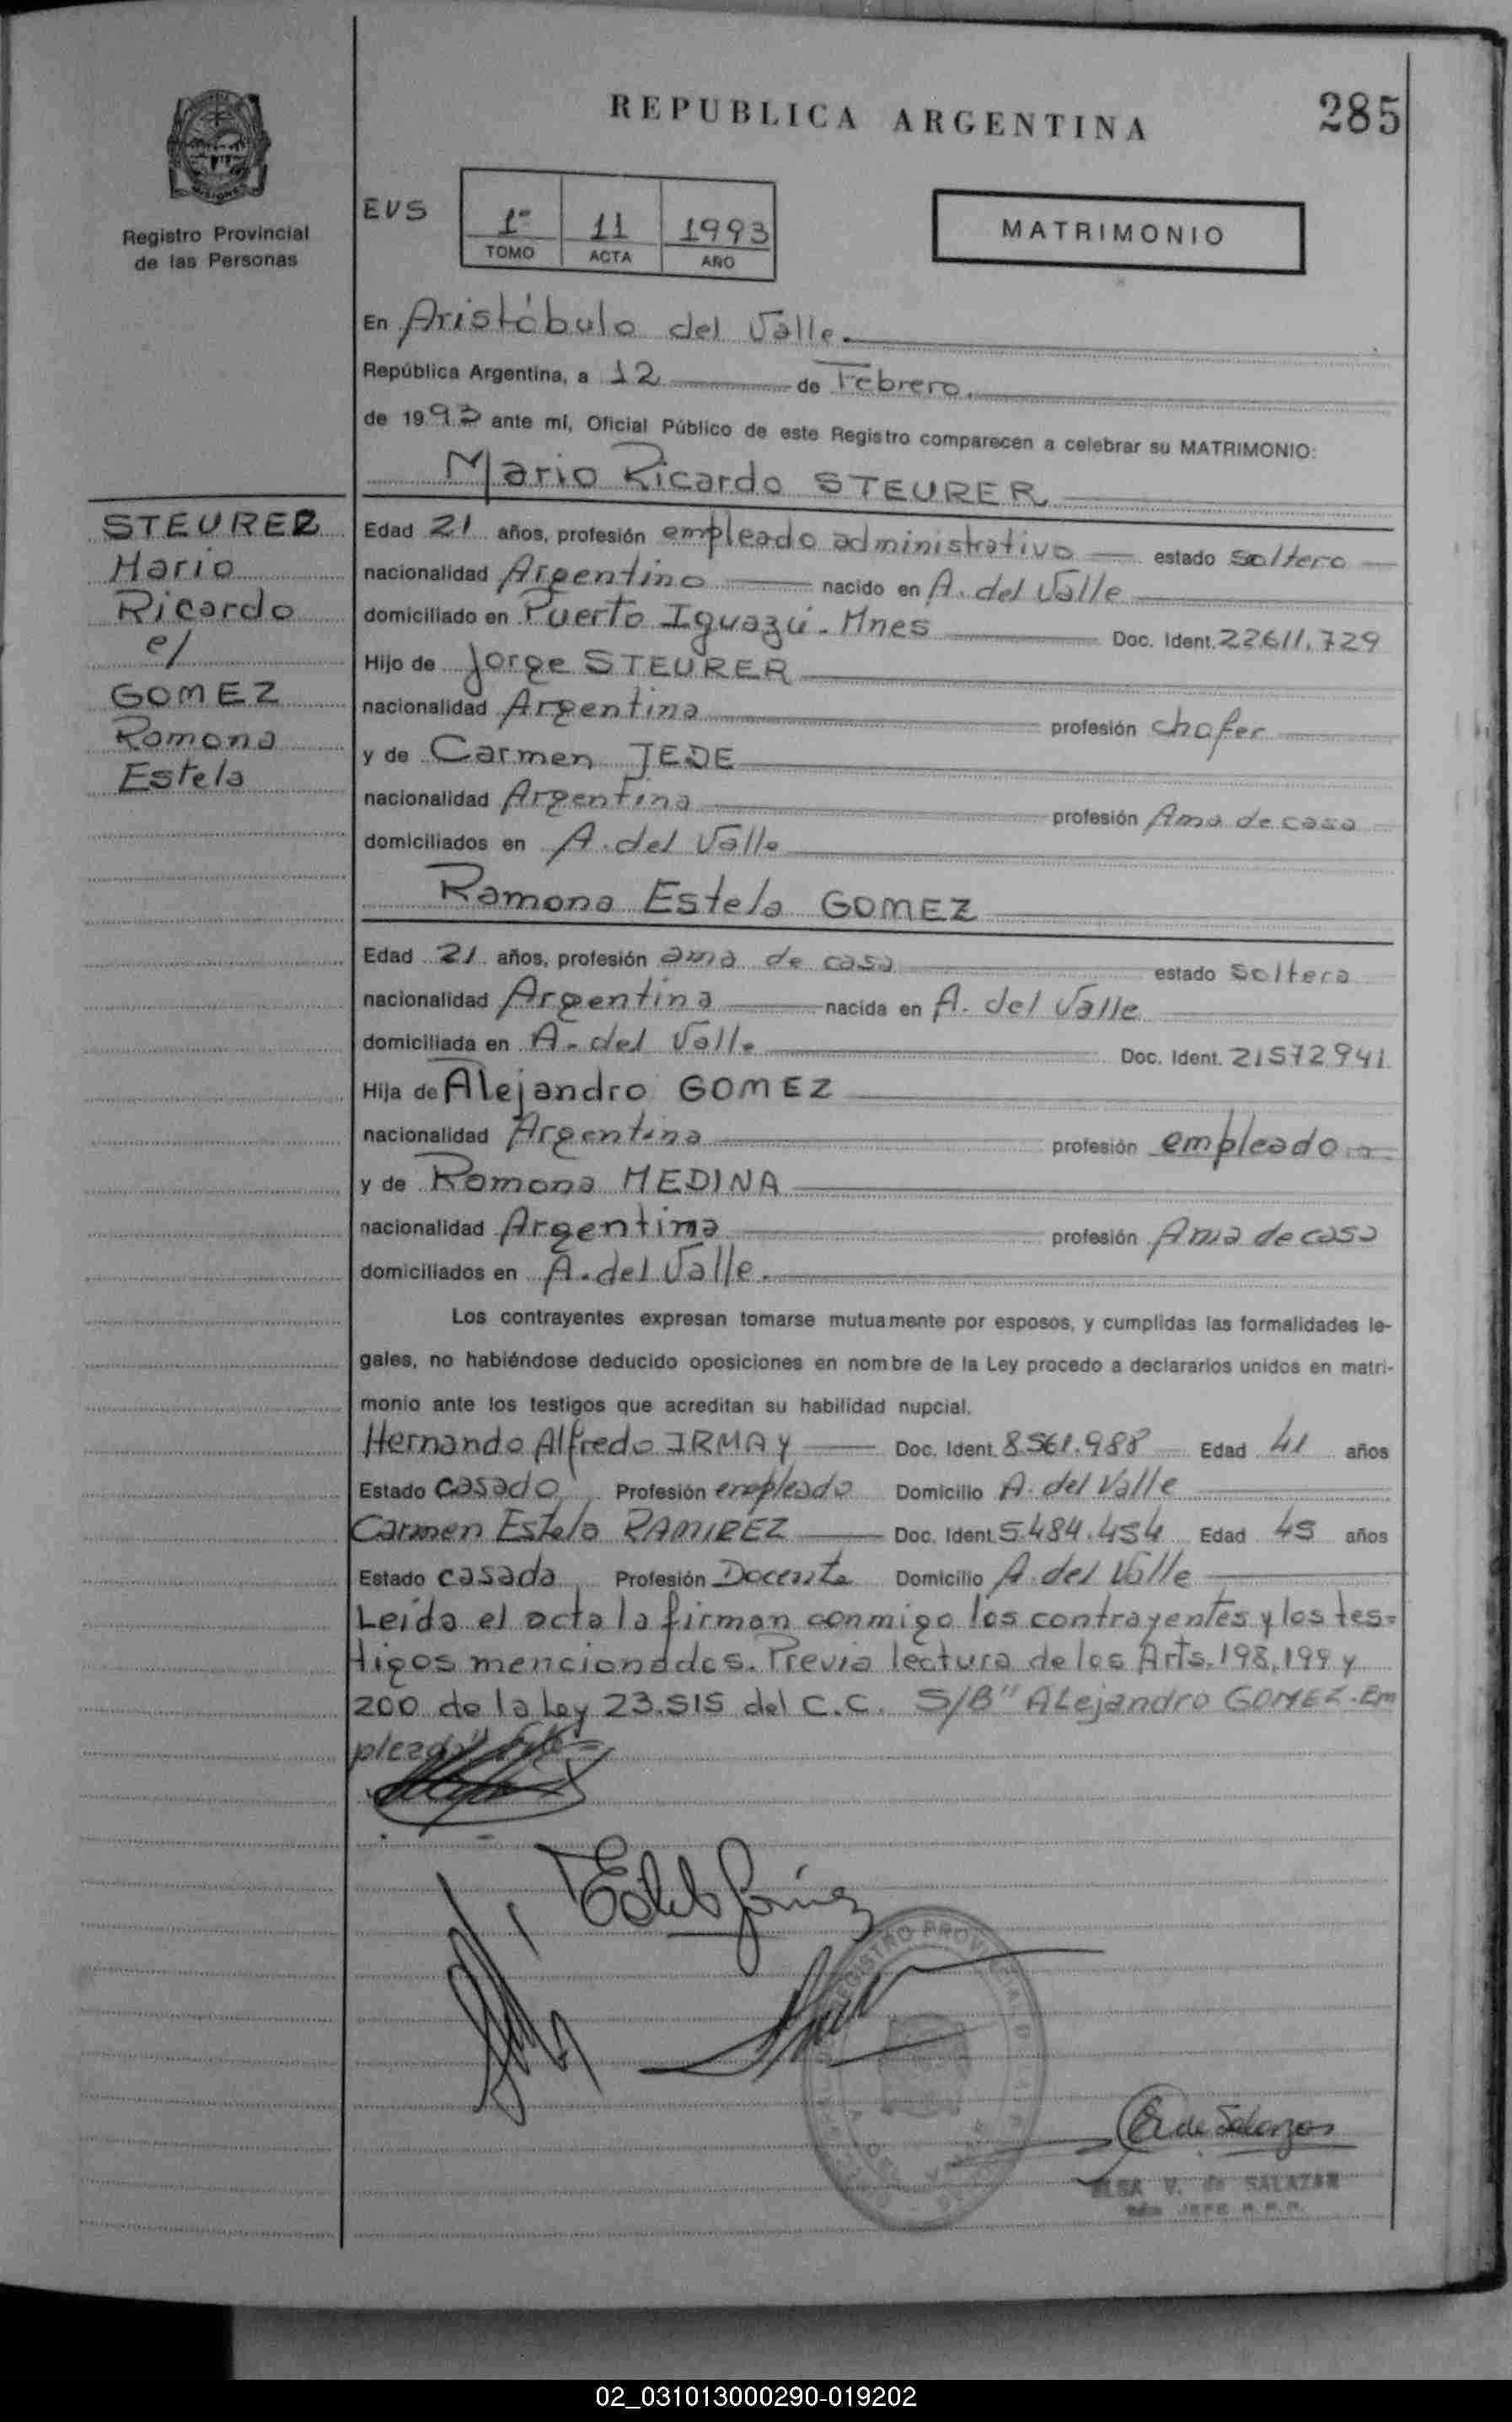 REPUBLICA ARGENTINA
285
Registro Provincial
de las Personas
EVS
1º 11 1993
TOMO ACTA AÑO
MATRIMONIO
En Aristóbulo del Valle.
República Argentina, a 12 de Febrero.
de 1993 ante mí, Oficial Público de este Registro comparecen a celebrar su MATRIMONIO:
Mario Ricardo STEURER
STEURER
Mario
Ricardo
c/
GOMEZ
Ramona
Estela
Edad 21 años, profesión empleado administrativo estado soltero
nacionalidad Argentino nacido en A. del Valle
domiciliado en Puerto Iguazú - Mnes Doc. Ident. 22611.729
Hijo de Jorge STEURER
nacionalidad Argentina profesión chofer
y de Carmen JEDE
nacionalidad Argentina profesión Ama de casa
domiciliados en A. del Valle
Ramona Estela GOMEZ
Edad 21 años, profesión ama de casa estado soltera
nacionalidad Argentina nacida en A. del Valle
domiciliada en A. del Valle Doc. Ident. 21572941
Hija de Alejandro GOMEZ
nacionalidad Argentina profesión empleado
y de Ramona MEDINA
nacionalidad Argentina profesión Ama de casa
domiciliados en A. del Valle.
Los contrayentes expresan tomarse mutuamente por esposos, y cumplidas las formalidades le-
gales, no habiéndose deducido oposiciones en nombre de la Ley procedo a declararlos unidos en matri-
monio ante los testigos que acreditan su habilidad nupcial.
Hernando Alfredo IRMAY Doc. Ident. 8.561.988 Edad 41 años
Estado casado Profesión empleado Domicilio A. del Valle
Carmen Estela RAMIREZ Doc. Ident. 5.484.454 Edad 45 años
Estado casada Profesión Docente Domicilio A. del Valle
Leída el acta la firman conmigo los contrayentes y los tes=
tigos mencionados. Previa lectura de los Arts. 198, 199 y
200 de la Ley 23.515 del C.C. S/B" Alejandro GOMEZ. Em
pleado"
Estela Gómez
REGISTRO PROVINCIAL DE
E. de Salazar
ELSA V. de SALAZAR
JEFE R.P.P.
02_031013000290-019202